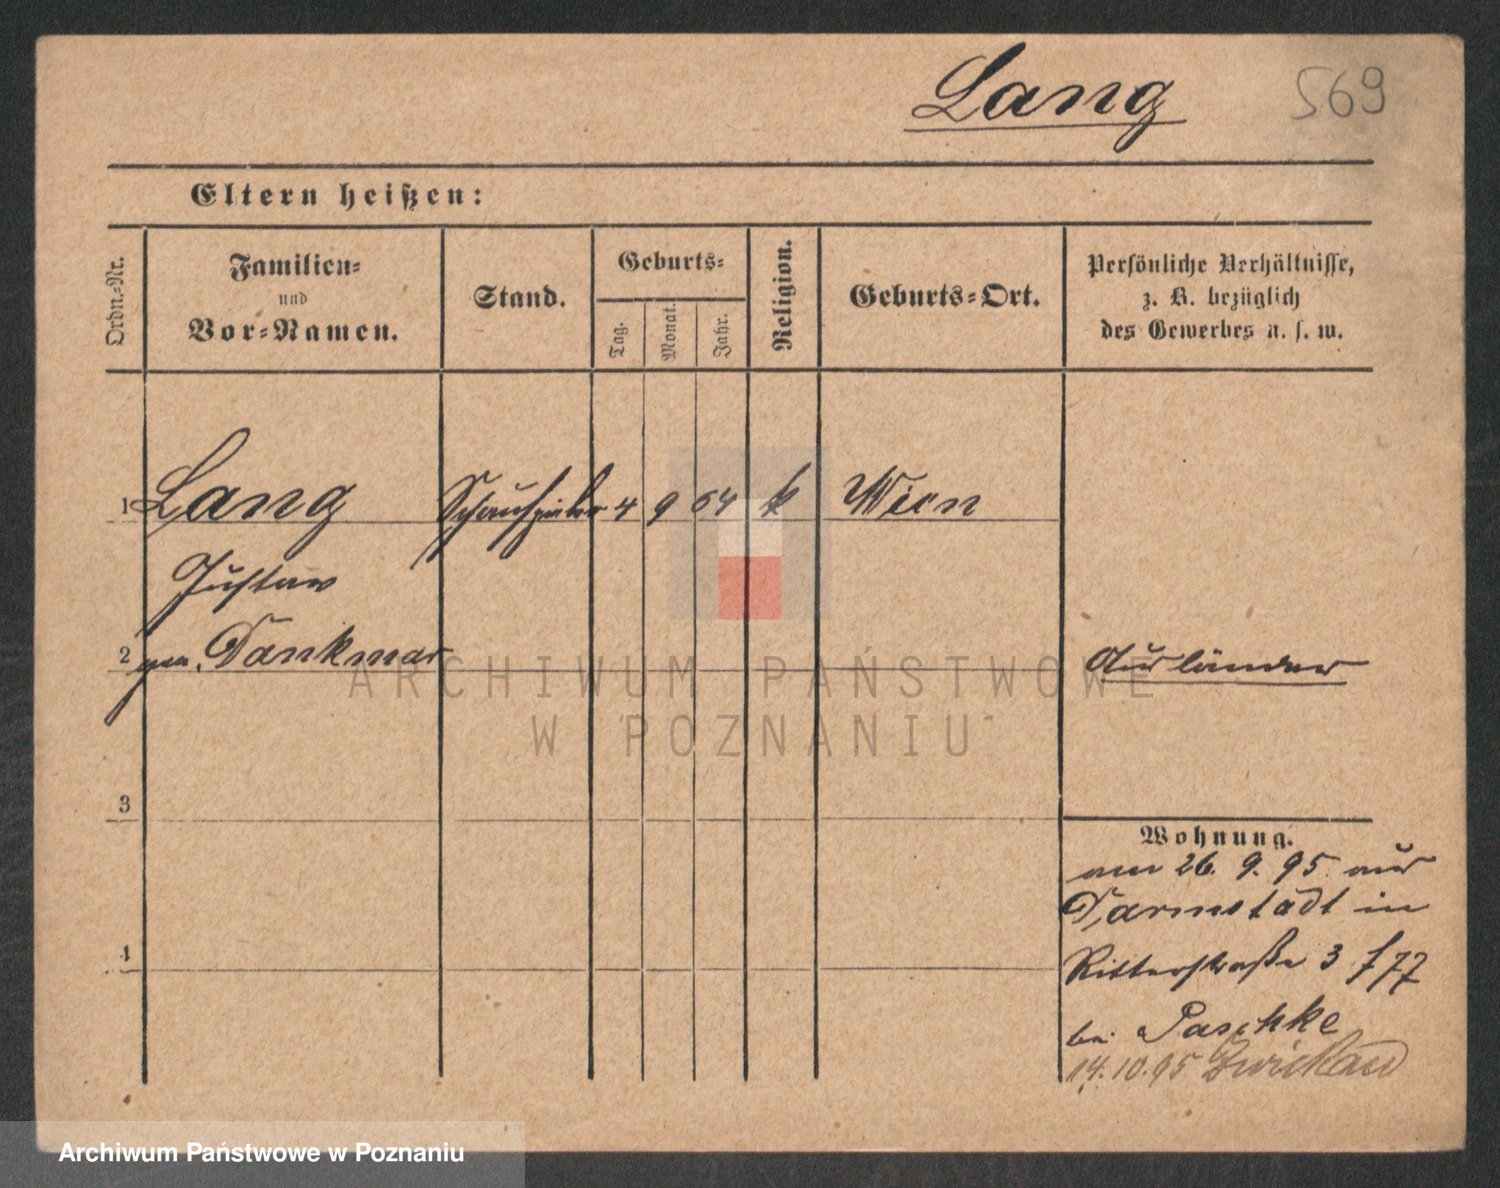 Lang 569
Eltern heißen:
Ordn.-Nr.
Familien-
und
Vor-Namen.
Stand.
Geburts-
Tag.
Monat.
Jahr.
Religion.
Geburts-Ort.
Persönliche Verhältnisse,
z. B. bezüglich
des Gewerbes u. s. w.
1 Lang Schauspieler 4 9 64 k Wien
Gustav
2 gen. Dankmar Ausländer
ARCHIWUM PAŃSTWOWE
W POZNANIU
3
Wohnung.
am 26. 9. 95 aus
Darmstadt in
4 Ritterstraße 3
bei Paschke
14.10.95 Zwickau
Archiwum Państwowe w Poznaniu